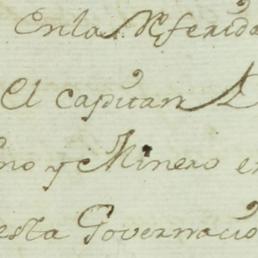 En la Referida
El capitan D
no y Minero en
esta Governacio